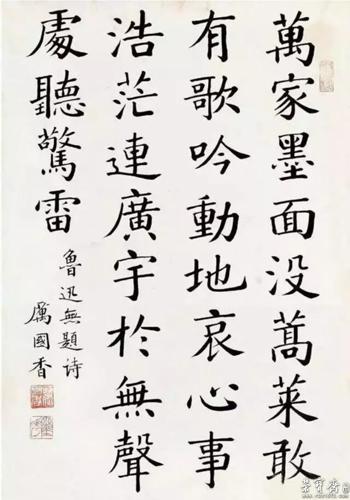 萬家墨面没蒿萊敢
有歌吟動地哀心事
浩茫連廣宇於無聲
處聽驚雷
魯迅無題诗
厲國香